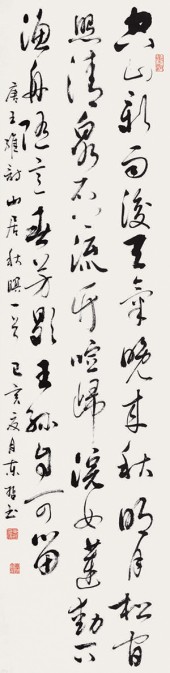 空山新雨後天氣晚來秋明月松間
照清泉石上流竹喧歸浣女蓮動下
漁舟隨意春芳歇王孫自可留
唐王維詩山居秋暝一首 己亥夏月東書